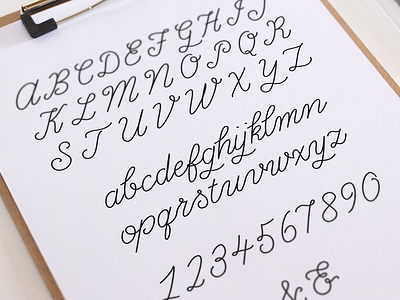 ABCDEFGHIJ
KLMNOPQR
STUVWXYZ
abcdefghijklmn
opqrstuvwxyz
1234567890
& &